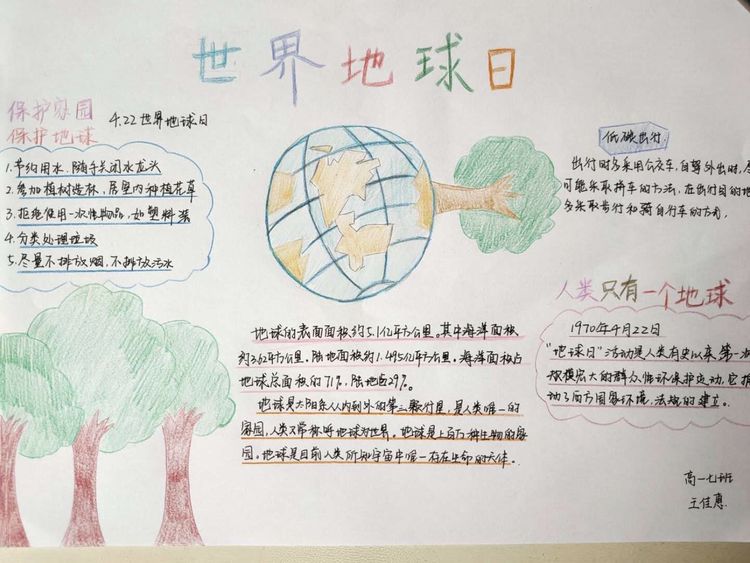 世界地球日
保护家园
保护地球
4.22世界地球日
1.节约用水,随手关闭水龙头
2.参加植树造林,居室内种植花草
3.拒绝使用一次性物品,如塑料袋
4.分类处理垃圾
5.尽量不排放烟,不排放污水
低碳出行
出行时多采用公交车,自驾外出时,尽
可能采取拼车的方法,在出行目的地
多采取步行和骑自行车的方式,
地球的表面面积约5.1亿平方公里。其中海洋面积
约3.6亿平方公里,陆地面积约1.495亿平方公里。海洋面积占
地球总面积的71%,陆地占29%。
地球是太阳系从内到外的第三颗行星,是人类唯一的
家园,人类又常称呼地球为世界。地球是上百万种生物的家
园。地球是目前人类所知宇宙中唯一存在生命的天体。
人类只有一个地球
1970年4月22日
"地球日"活动是人类有史以来第一次
规模宏大的群众性环保护运动,它推
动了西方国家环境,法规的建立。
高一七班
王佳惠